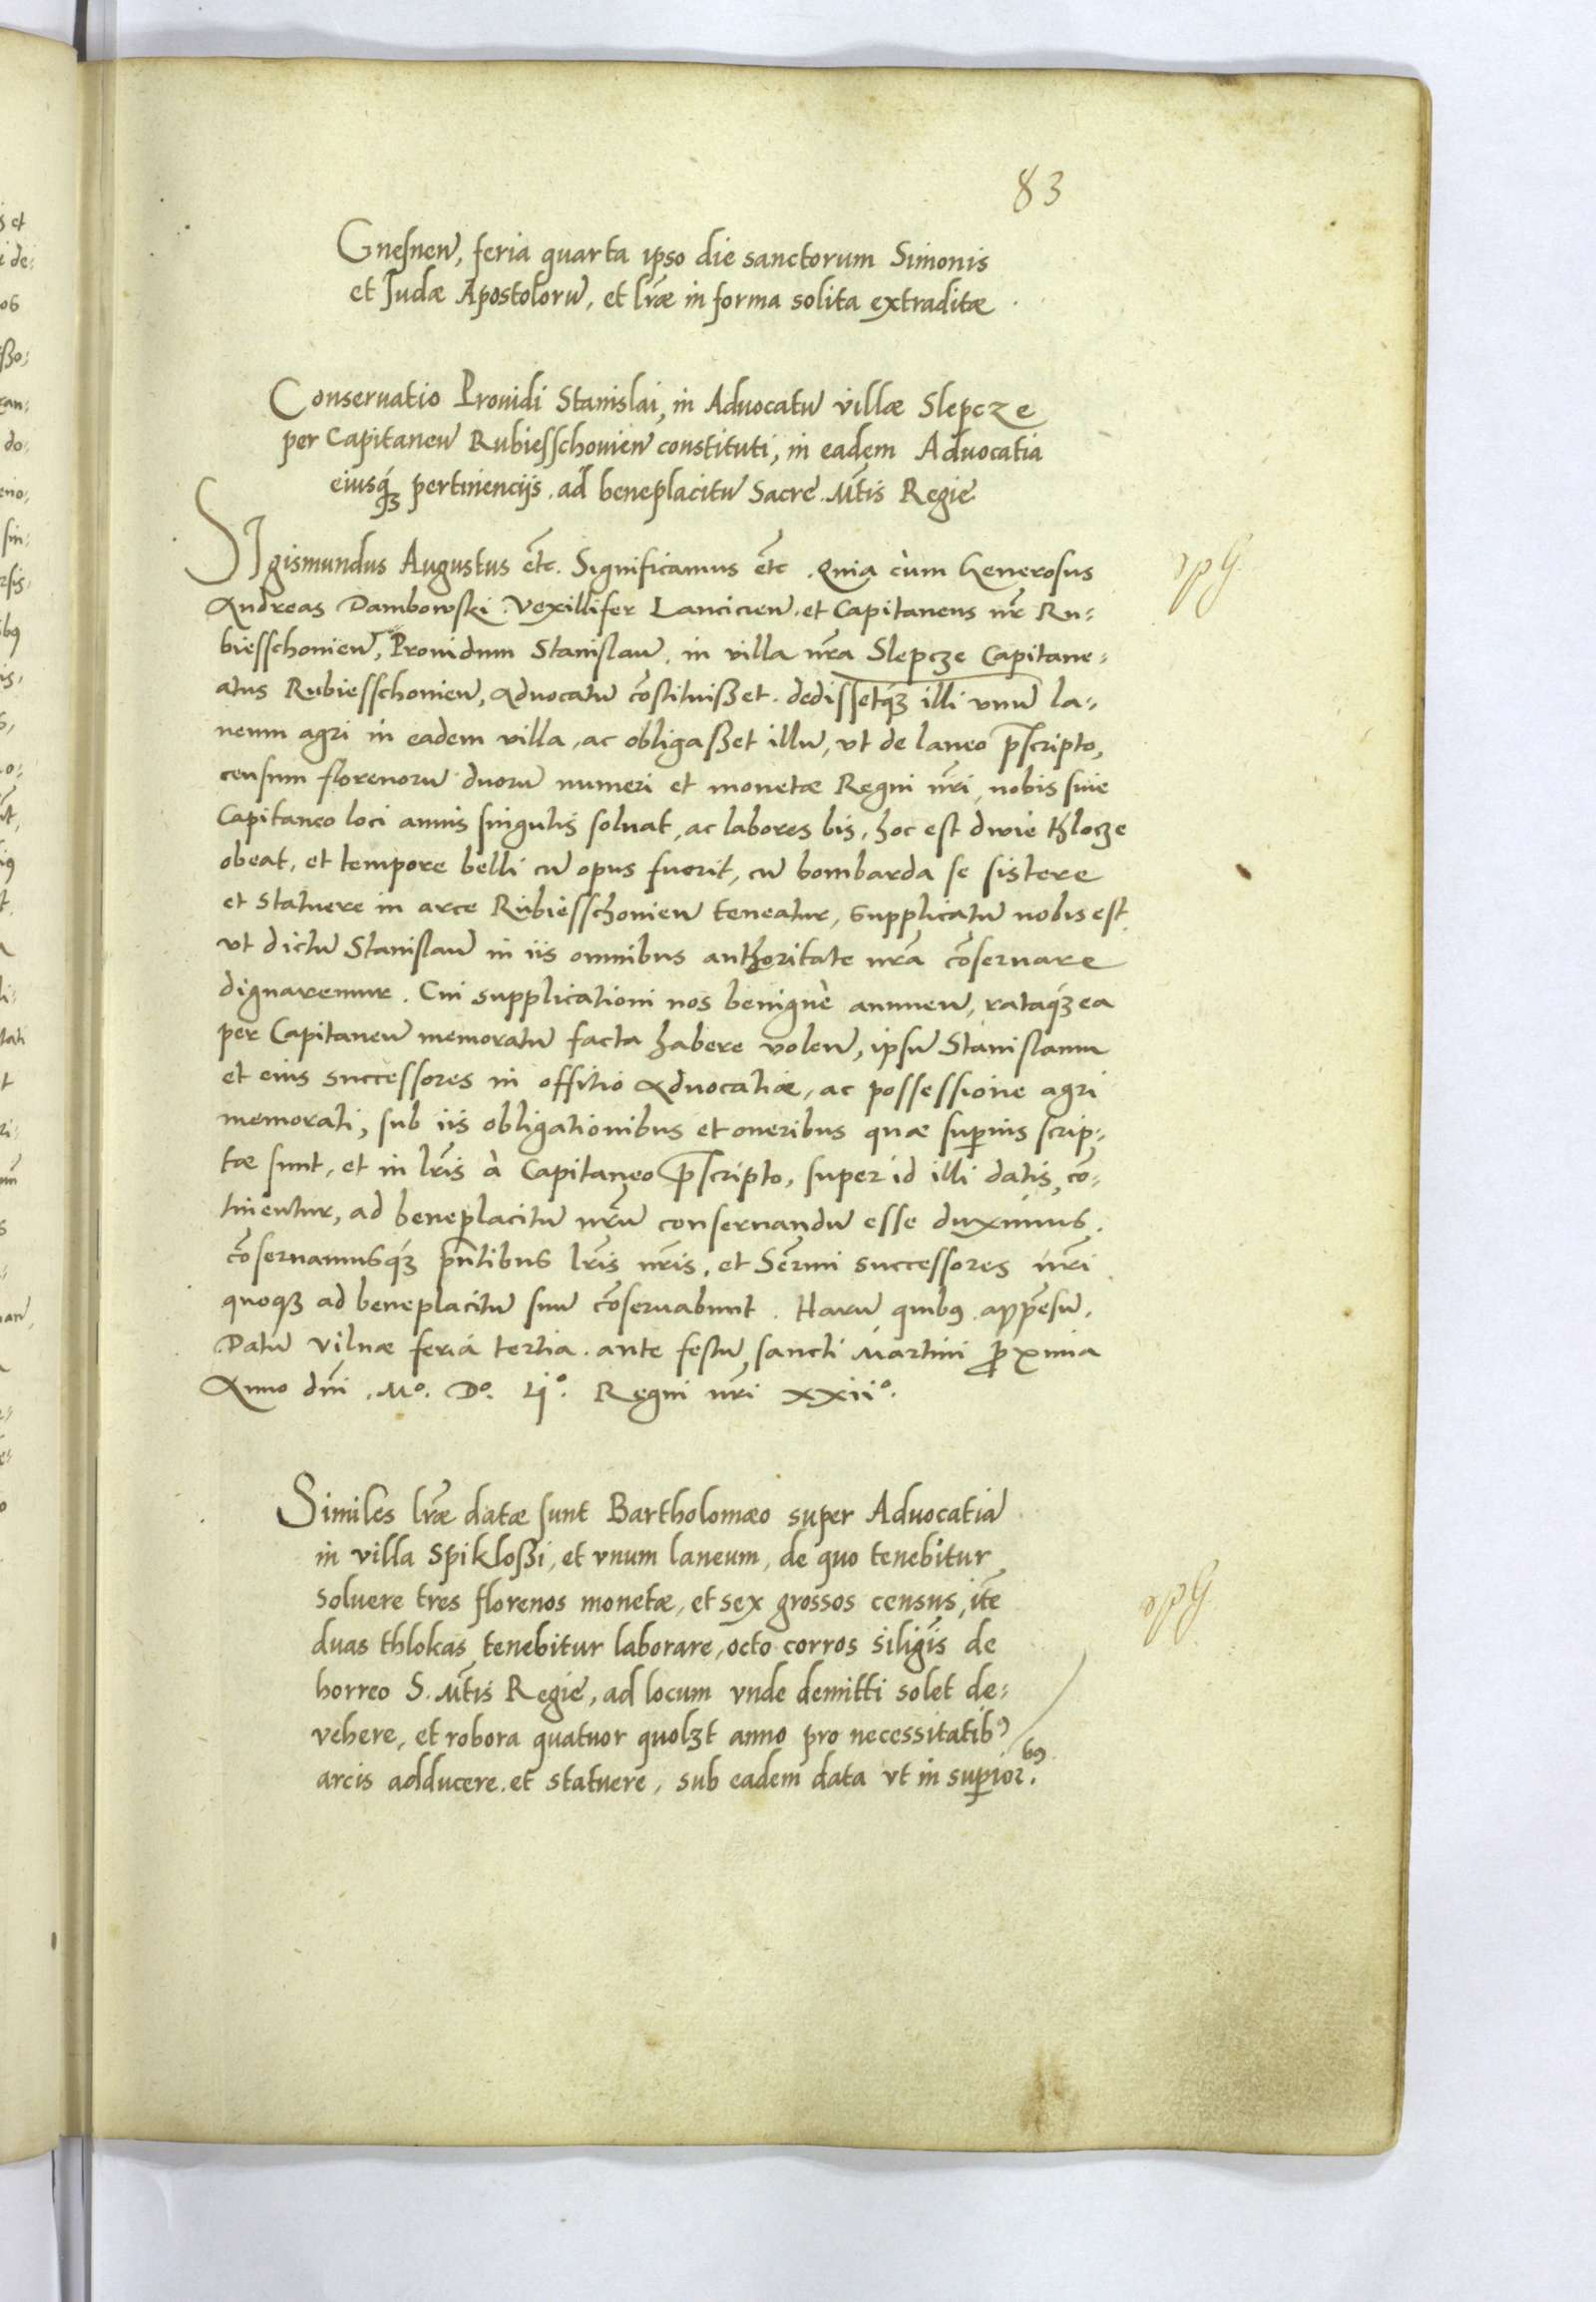 83
Gnesnen, feria quarta ipso die sanctorum Simonis
et Judæ Apostoloru̅, et lr̃æ in forma solita extraditæ.
Conseruatio Prouidi Stanislai, in Aduocatu̅ villæ Slepcze
per Capitaneu̅ Rubiesschouien̅ constituti, in eadem Aduocatia
eiusq́ꝫ pertinencijs ad beneplacitu̅ Sacrę Mt̃is Regię
SIgismundus Augustus et̃c. Significamus et̃c. Quia cùm Generosus
Andreas Dambowski Vexillifer Lancicien̅. et Capitaneus nr̃ Ru-
biesschouien̅, Prouidum Stanislau̅, in villa nr̃a Slepcze Capitane-
atus Rubiesschouien̅, Aduocatu̅ co̅stituißet. dedissetq́ꝫ illi vnu̅ la-
neum agri in eadem villa, ac obligaßet illu̅, vt de laneo p̅scripto,
censum florenoru̅ duoru̅ numeri et monetæ Regni nr̃i, nobis siue
Capitaneo loci annis singulis soluat, ac labores bis, hoc est dwie thlocze
obeat, et tempore belli cu̅ opus fuerit, cu̅ bombarda se sistere
et statuere in arce Rubiesschouien̅ teneatur, supplicatu̅ nobis est.
vt dictu̅ Stanislau̅ in iis omnibus authoritate nr̃a co̅seruare
dignaremur. Cui supplicationi nos benignè annuen̅, rataq́ꝫ ea
per Capitaneu̅ memoratu̅ facta habere volen̅, ipsu̅ Stanislaum
et eius successores in offitio Aduocatiæ, ac possessione agri
memorati, sub iis obligationibus et oneribus quæ superius scrip-
tæ sunt, et in lr̃is à Capitaneo p̅scripto, super id illi datis, co̅-
tinentur, ad beneplacitu̅ nr̃u̅ conseruandu̅ esse duximus.
co̅seruamusq́ꝫ pn̅tibus lr̃is nr̃is, et Ser̃mi successores nr̃i
quoqꝫ ad beneplacitu̅ suu̅ co̅seruabunt. Haru̅ quibꝰ appe̅su̅.
Datu̅ Vilnæ feria tertia ante festu̅ sancti Martini proxima
Anno dn̅i Mº. Dº. Lijº. Regni nr̃i xxiiº.
Similes lr̃æ datæ sunt Bartholomæo super Aduocatia̅
in villa Spikloßi, et vnum laneum, de quo tenebitur
soluere tres florenos monetæ, et sex grossos census, ite̅
duas thlokas tenebitur laborare, octo corros siliginis de
horreo S. Mt̃is Regię, ad locum vnde demitti solet de-
vehere, et robora quatuor quolꝫt anno pro necessitatibꝰ
arcis adducere et statuere, sub eadem data vt in superioribꝰ.